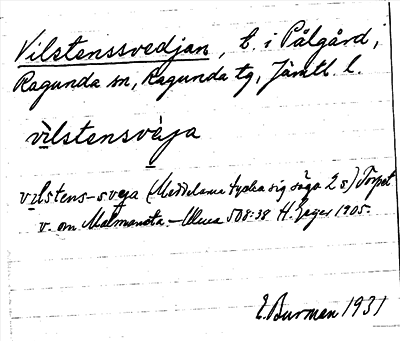 Vilstenssvedjan, t. i Pålgård,
Ragunda sn, Ragunda tg, Jämtl. l.
vilstensvèja
vilstens-sveja (Meddelarna tycks sig säga 2 s) Torpet
v. om Malmansta. 508:38 H. Geijer 1905.
E. Burman 1931